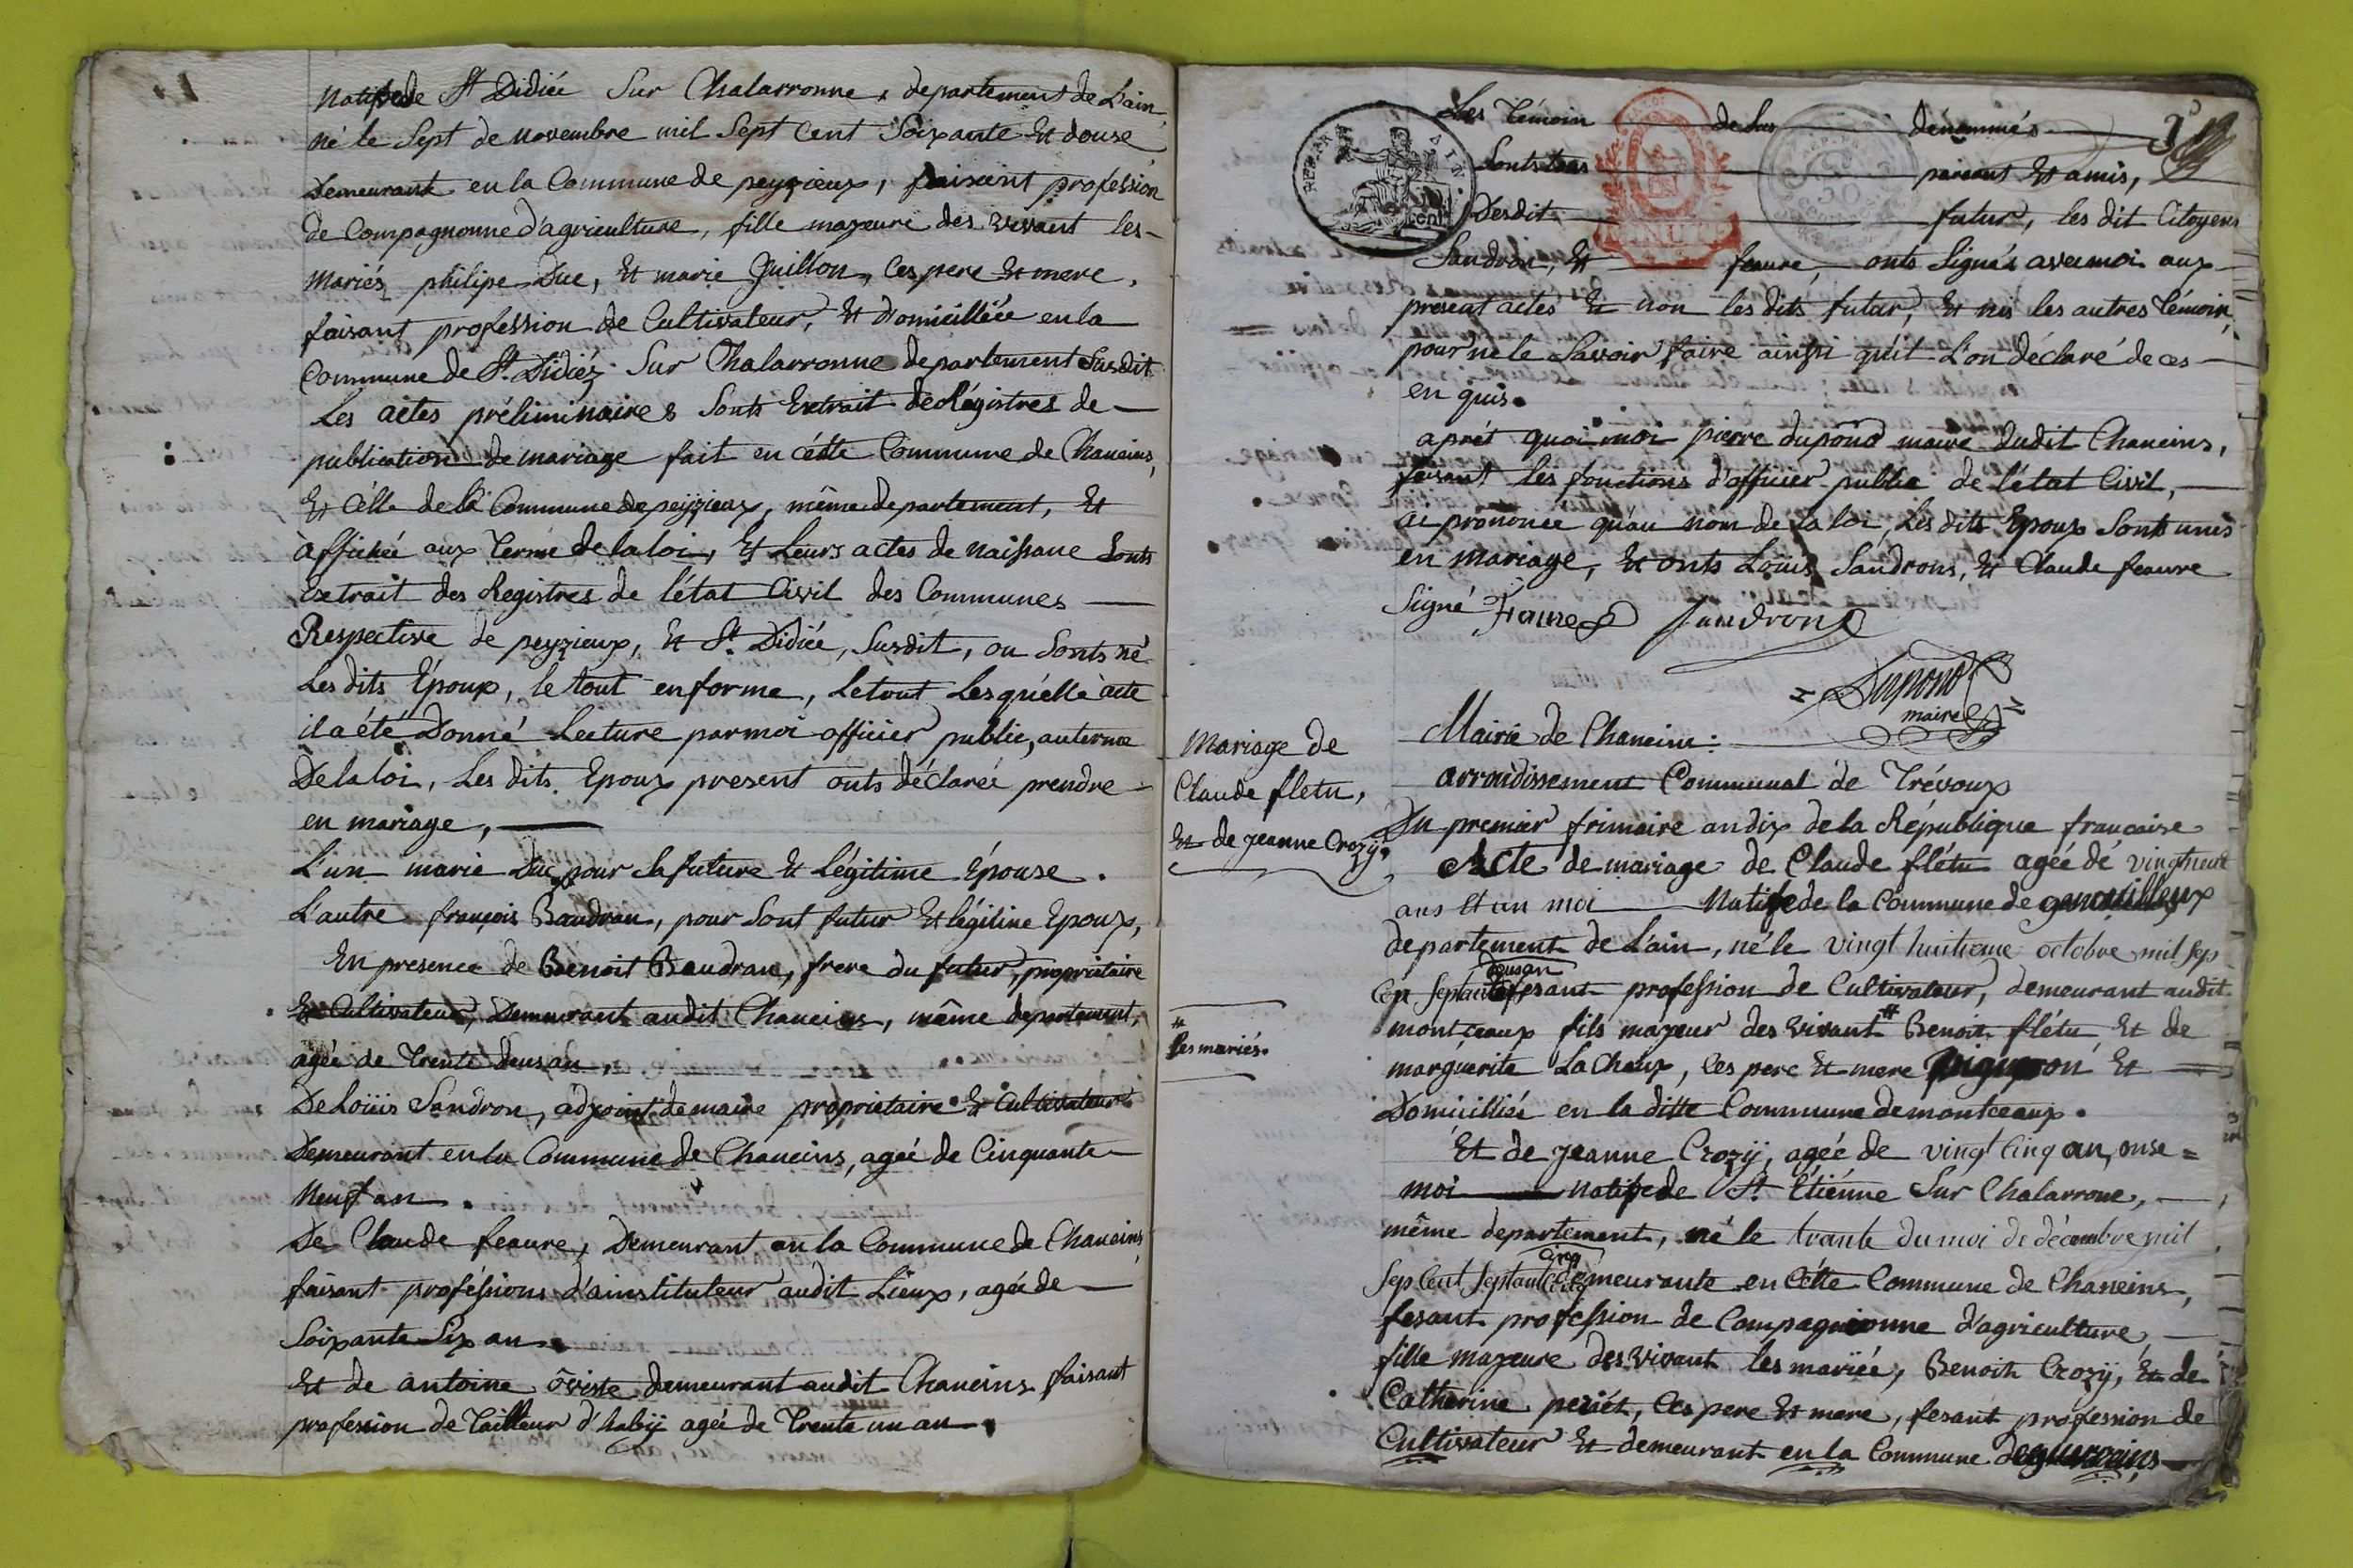 Natifede St Didiée Sur Chalarronne, departement de L'ain,
né le Sept de novembre mil Sept Cent Soixante Et douse
Demeurante en la Commune de peyzieux, faisant profession
de Compagnonne d'agriculture, fille majeure des vivant les
mariés philipe Duc, Et marie Guillon, Ces pere Et mere,
faisant profession de Cultivateur, Et domicilliée en la
Commune de St. Didiéz Sur Chalarronne departement Susdit
Les actes préliminaires Sonts Extrait de Régistres de
publication de mariage fait en cétte Commune de Chaneins,
Et Célle de la Commune de peyzieux, même departement, Et
affichée aux Terme de la loi, Et Leurs actes de naissane Sonts
Extrait des Registres de l'état Civil des Communes
Respective de peyzieux, Et St. Didiée, Susdit, ou Sonts né
Les dits Époux, le tout en forme, Letout Lesquélle acte
il a été Donné Lecture par moi officier public, auterme
De la loi, Les dits Epoux present onts déclarée prendre
en mariage,
L'un marie Duc pour Sa future Et Légitime Épouse.
L'autre françois Baudran, pour Sont futur Et légitime Epoux,
En presence de Benoit Baudran, frere du futur, propriétaire
Et Cultivateur, Demeurant audit Chaneins, même departement,
agée de Trente deusan,
De Loüis Sandron, adjoint de maire propriétaire Et Cultivateur
Demeurant en la Commune de Chaneins, agée de Cinquante
Neuf an.
De Claude feaure, Demeurant en la Commune de Chaneins,
faisant proféssions d'ainstituteur audit Lieux, agée de
Soixante Six an.
Et de antoine oviste demeurant audit Chaneins faisant
profession de Tailleur d'habij agée de Trente un an.
Les Témoin de Sus dénommés
Sonts tous parians Et amis,
Desdit futur, les dit Citoyens
Sandron, Et feaure, onts Signés avec moi aux
present actes Et non les dits futur, Et nis les autres Témoin,
pour ne le Savoir faire ainssi quil L'on déclaré de ces
en quis.
aprét quoi moi pierre dupond maire dudit Chaneins,
fesant les fonctions d'officier public de l'état Civil,
ai prononcé qu'au nom de la loi, Les dits Epoux Sonts unis
en mariage, Et onts Loüis Sandrons, Et Claude feaure
Signé Faure Sandron
Dupond
maire
Mariage de
Claude fletu,
Et de jeanne Crozij.
Mairie de Chaneins:
arrondissement Communal de Trévoux
Du premier frimaire an dix de la République francaise
Acte de mariage de Claude flétu agée de vingtneuf
ans Et un moi Natifede la Commune de genouilleux
departement de L'ain, né le vingt huitieme octobre mil sep
deusan
Cen septante fesant profession de Cultivateur, demeurant audit
montceaux fils majeur des vivant # Benoit flétu Et de
# les mariés.
marguerite La Chaux, Ces pere Et mere Et
Domicilliés en la ditte Commune de montceaux.
Et de jeanne Crozij, agée de vingt cinq an, onse =
moi natifede St. Étiénne Sur Chalarrone,
même departement, né le trante du moi de décembre mil
cinq
Sep Cent Septante demeurante en Cétte Commune de Chaneins,
fesant profession de Compagnonne d'agriculture,
fille majeure des vivant les mariée, Benoit Crozij, Et de
Catherine periét, Ces pere Et mere, fesant profession de
Cultivateur Et demeurant en la Commune deguereins